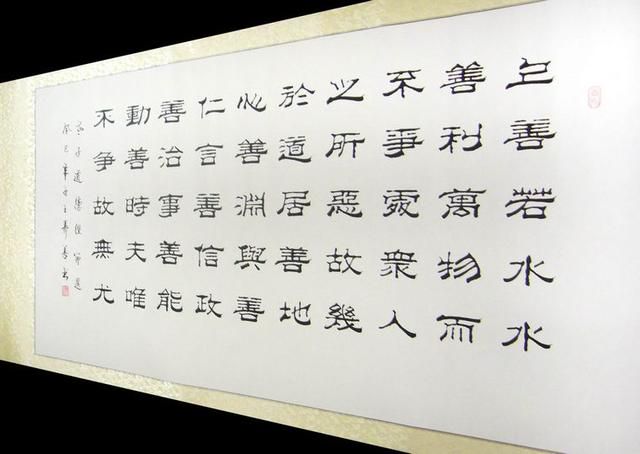 上善若水水
善利萬物而
不爭處衆人
之所惡故幾
於道居善地
心善淵與善
仁言善信政
善治事善能
動善時夫唯
不争故無尤
老子道德經節選
癸巳年